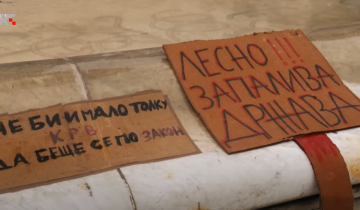 НЕ БИ ИМАЛО ТОЛКУ
КРВ
ДА БЕШЕ СЕ ПО ЗАКОН
ЛЕСНО !!!
ЗАПАЛИВА
ДРЖАВА